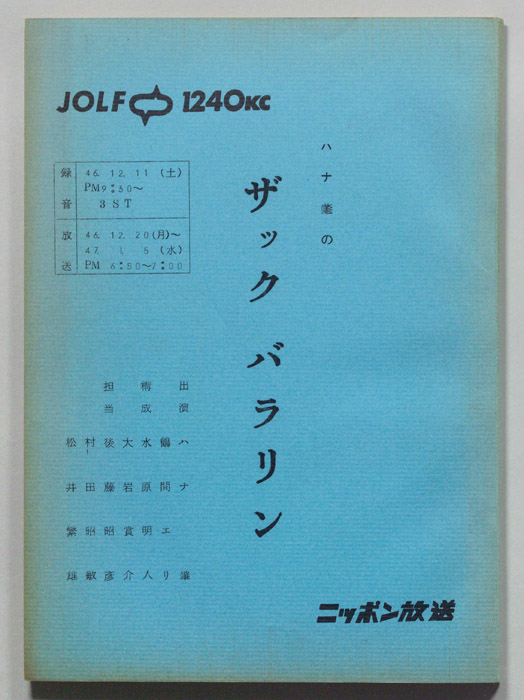 JOLF 1240KC
録音 46. 12. 11 (土)
PM 9:50~
3 ST
放送 46. 12. 20 (月)~
47. 1. 5 (水)
PM 6:50~7:00
ハナ肇の
ザック バラリン
出演 ハナ肇
鶴間エリ
構成 水原明人
大岩賞介
担当 後藤昭彦
村田昭敏
松井繁雄
ニッポン放送